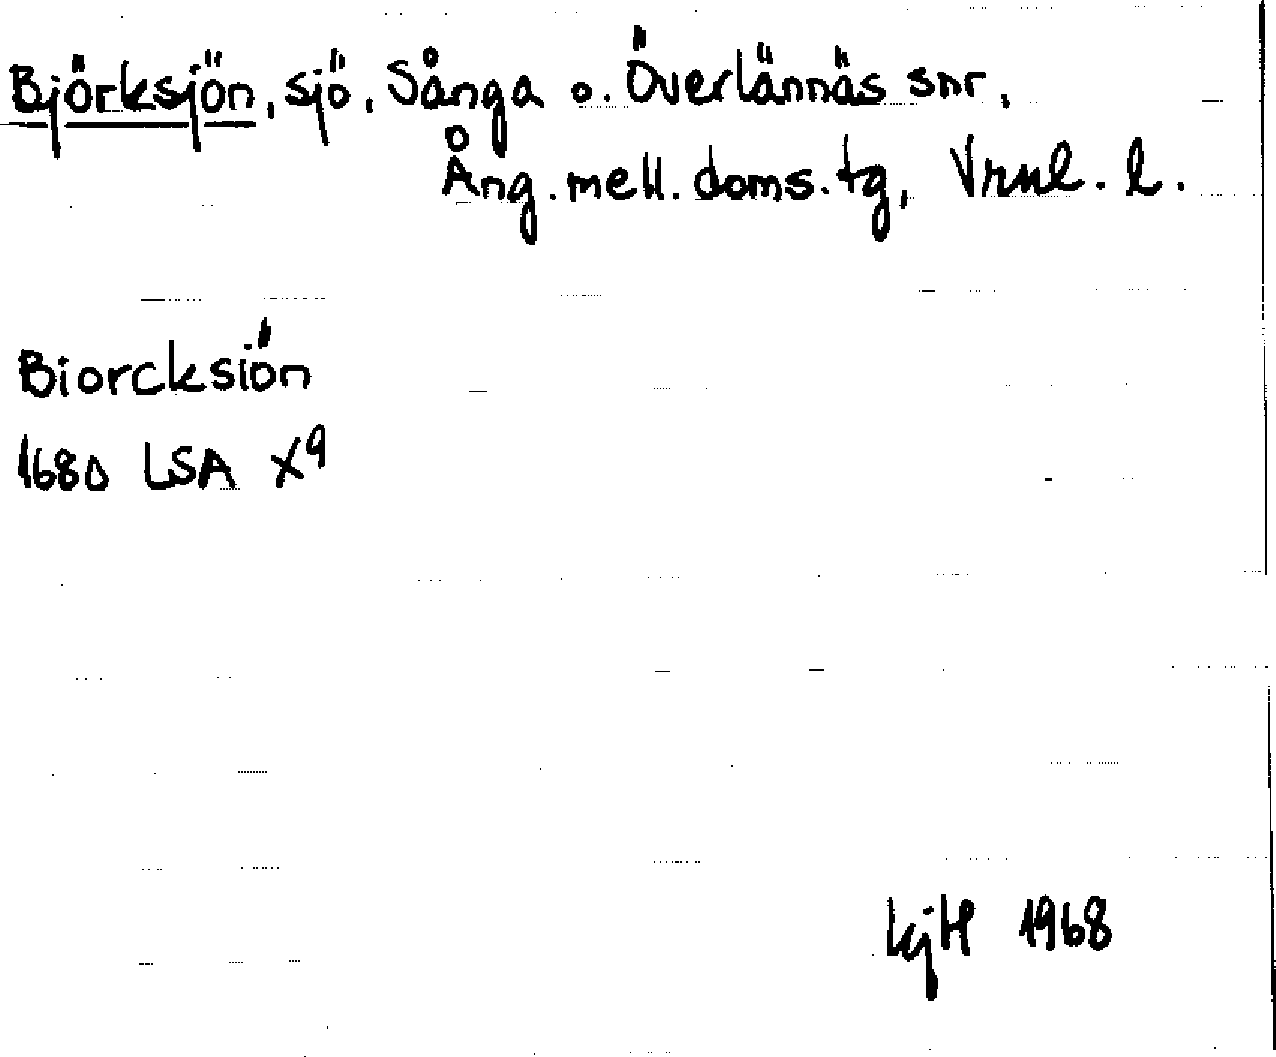 Björksjön, sjö, Sånga o. Överlännäs snr,
Ång. mell. doms. tg, Vrnl. l.
Biorcksiön
1680 LSA X9
KjH 1968